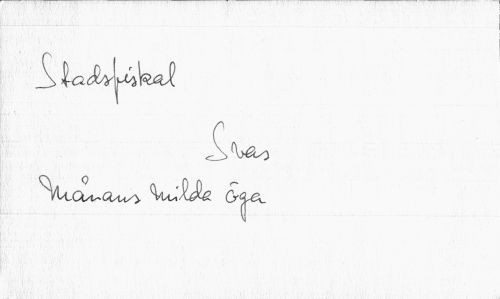 Stadsfiskal
Svas
Månans milda öga